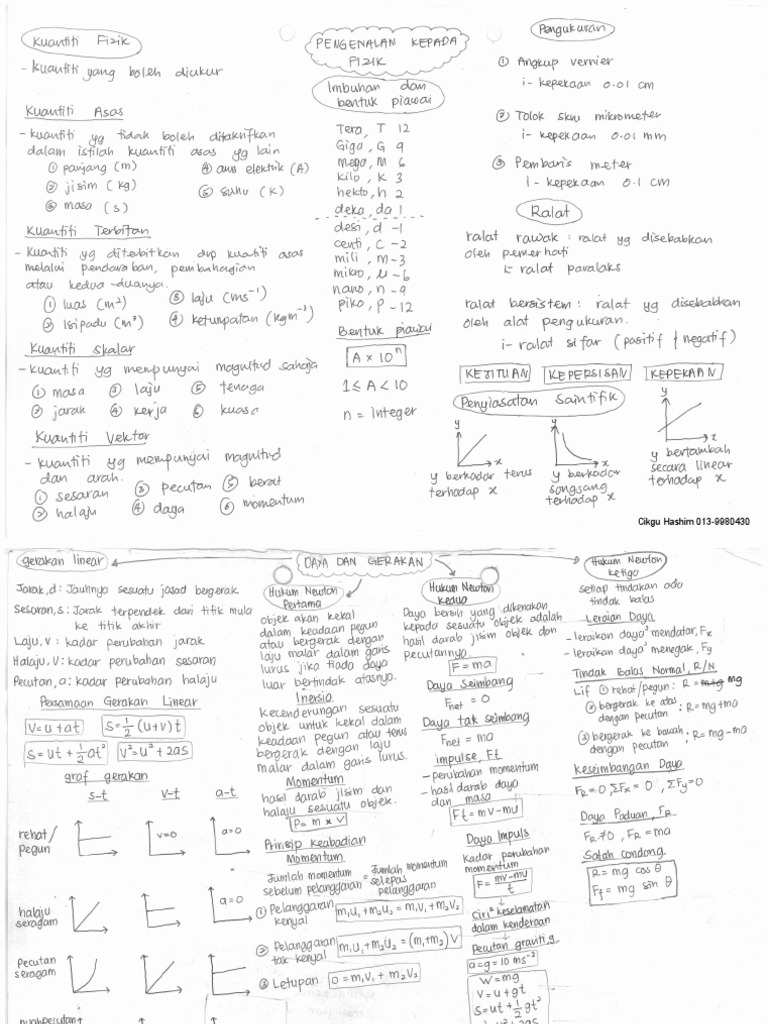 PENGENALAN KEPADA
FIZIK
Kuantiti Fizik
- Kuantiti yang boleh diukur
Kuantiti Asas
- kuantiti yg tidak boleh ditakrifkan
dalam istilah kuantiti asas yg lain
① panjang (m)
② jisim (kg)
③ masa (s)
④ arus elektrik (A)
⑤ suhu (K)
Kuantiti Terbitan
- Kuantiti yg diterbitkan drp kuantiti asas
melalui pendaraban, pembahagian
atau kedua-duanya.
① luas (m²)
② Isipadu (m³)
③ laju (ms⁻¹)
④ ketumpatan (kgm⁻³)
Kuantiti Skalar
- kuantiti yg mempunyai magnitud sahaja
① masa
② jarak
③ laju
④ kerja
⑤ tenaga
⑥ kuasa
Kuantiti Vektor
- kuantiti yg mempunyai magnitud
dan arah.
① sesaran
② halaju
③ pecutan
④ daya
⑤ berat
⑥ momentum
Imbuhan dan
bentuk piawai
Tera, T 12
Giga, G 9
mega, M 6
kilo, k 3
hekto, h 2
deka, da 1
desi, d -1
centi, c -2
mili, m -3
mikro, μ -6
nano, n -9
piko, p -12
Bentuk piawai
A × 10ⁿ
1 ≤ A < 10
n = Integer
Pengukuran
① Angkup vernier
i- kepekaan 0.01 cm
② Tolok skru mikrometer
i- kepekaan 0.01 mm
③ Pembaris meter
i- kepekaan 0.1 cm
Ralat
ralat rawak : ralat yg disebabkan
oleh pemerhati
i- ralat paralaks
ralat bersistem : ralat yg disebabkan
oleh alat pengukuran.
i- ralat sifar (positif & negatif)
KEJITUAN
KEPERSISAN
KEPEKAAN
Penyiasatan Saintifik
y
x
y berkadar terus
terhadap x
y
x
y berkadar
songsang
terhadap x
y
x
y bertambah
secara linear
terhadap x
Cikgu Hashim 013-9980430
DAYA DAN GERAKAN
gerakan linear
Jarak, d : Jauhnya sesuatu jasad bergerak
Sesaran, s : Jarak terpendek dari titik mula
ke titik akhir
Laju, v : kadar perubahan jarak
Halaju, v : kadar perubahan sesaran
Pecutan, a : kadar perubahan halaju
Persamaan Gerakan Linear
v = u + at
s = ½(u+v)t
s = ut + ½at²
v² = u² + 2as
graf gerakan
s-t
v-t
a-t
rehat/
pegun
v=0
a=0
halaju
seragam
a=0
Pecutan
seragam
Hukum Newton
Pertama
objek akan kekal
dalam keadaan pegun
atau bergerak dengan
laju malar dalam garis
lurus jika tiada daya
luar bertindak atasnya.
Inersia
kecenderungan sesuatu
objek untuk kekal dalam
keadaan pegun atau terus
bergerak dengan laju
malar dalam garis lurus.
Momentum
hasil darab jisim dan
halaju sesuatu objek.
P = m × v
Prinsip Keabadian
Momentum
Jumlah momentum
sebelum pelanggaran
=
Jumlah momentum
selepas
pelanggaran
① Pelanggaran
kenyal
m₁u₁+m₂u₂ = m₁v₁+m₂v₂
② Pelanggaran
tak kenyal
m₁u₁+m₂u₂ = (m₁+m₂)v
③ Letupan
0 = m₁v₁ + m₂v₂
Hukum Newton
Kedua
Daya bersih yang dikenakan
kepada sesuatu objek adalah
hasil darab jisim objek dan
pecutannya.
F = ma
Daya Seimbang
Fnet = 0
Daya tak seimbang
Fnet = ma
impulse, Ft
- perubahan momentum
- hasil darab daya
dan masa
Ft = mv-mu
Daya Impuls
Kadar perubahan
momentum
F = mv-mu / t
ciri² keselamatan
dalam kenderaan
Pecutan graviti g
a = g = 10 ms⁻²
W = mg
v = u + gt
s = ut + ½gt²
Hukum Newton
ketiga
setiap tindakan ada
tindak balas
Leraian Daya
- leraikan daya² mendatar, Fx
- leraikan daya² menegak, Fy
Tindak Balas Normal, R/N
Lif ① rehat/pegun : R = mg
② bergerak ke atas
dengan pecutan : R = mg+ma
③ bergerak ke bawah
dengan pecutan : R = mg-ma
Keseimbangan Daya
FR = 0, ΣFx = 0, ΣFy = 0
Daya Paduan, FR
FR ≠ 0, FR = ma
Satah condong
R = mg cos θ
Ff = mg sin θ